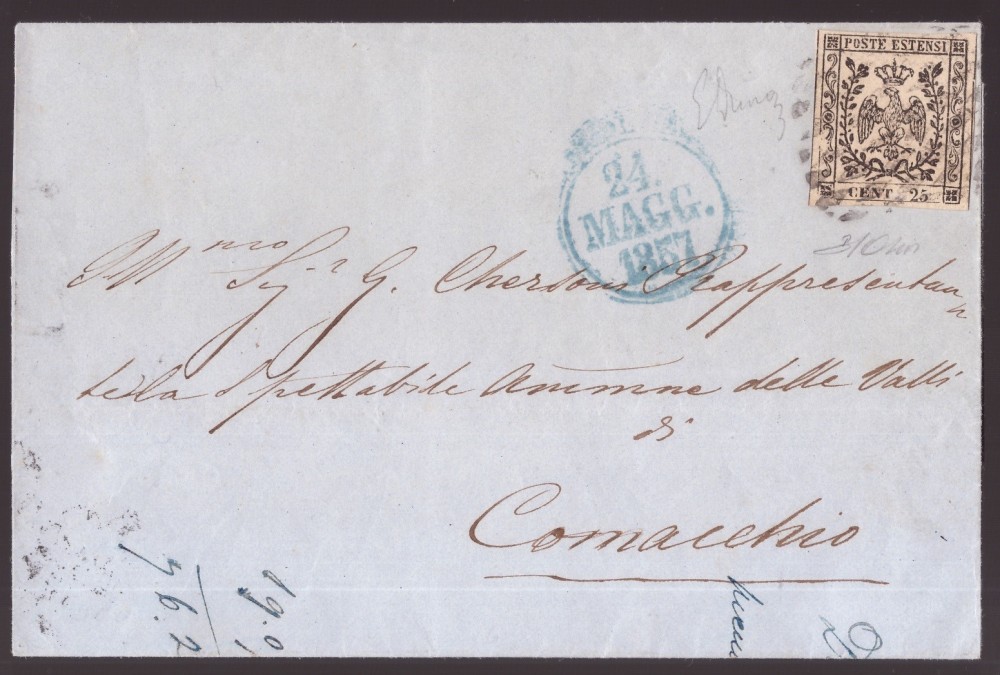 POSTE ESTENSI
CENT. 25
24.
MAGG.
1857
Sigr G. Chersoni Rappresentan
te la Spettabile delle Valli
di
Comacchio
19.0
76.2